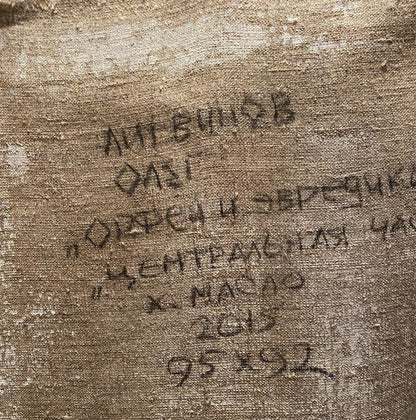 ЛИТВИНОВ
ОЛЕГ
„ОРФЕЙ И ЭВРЕДИК
„ЦЕНТРАЛЬНАЯ ЧАС
х. МАСЛО
2015
95 x 92